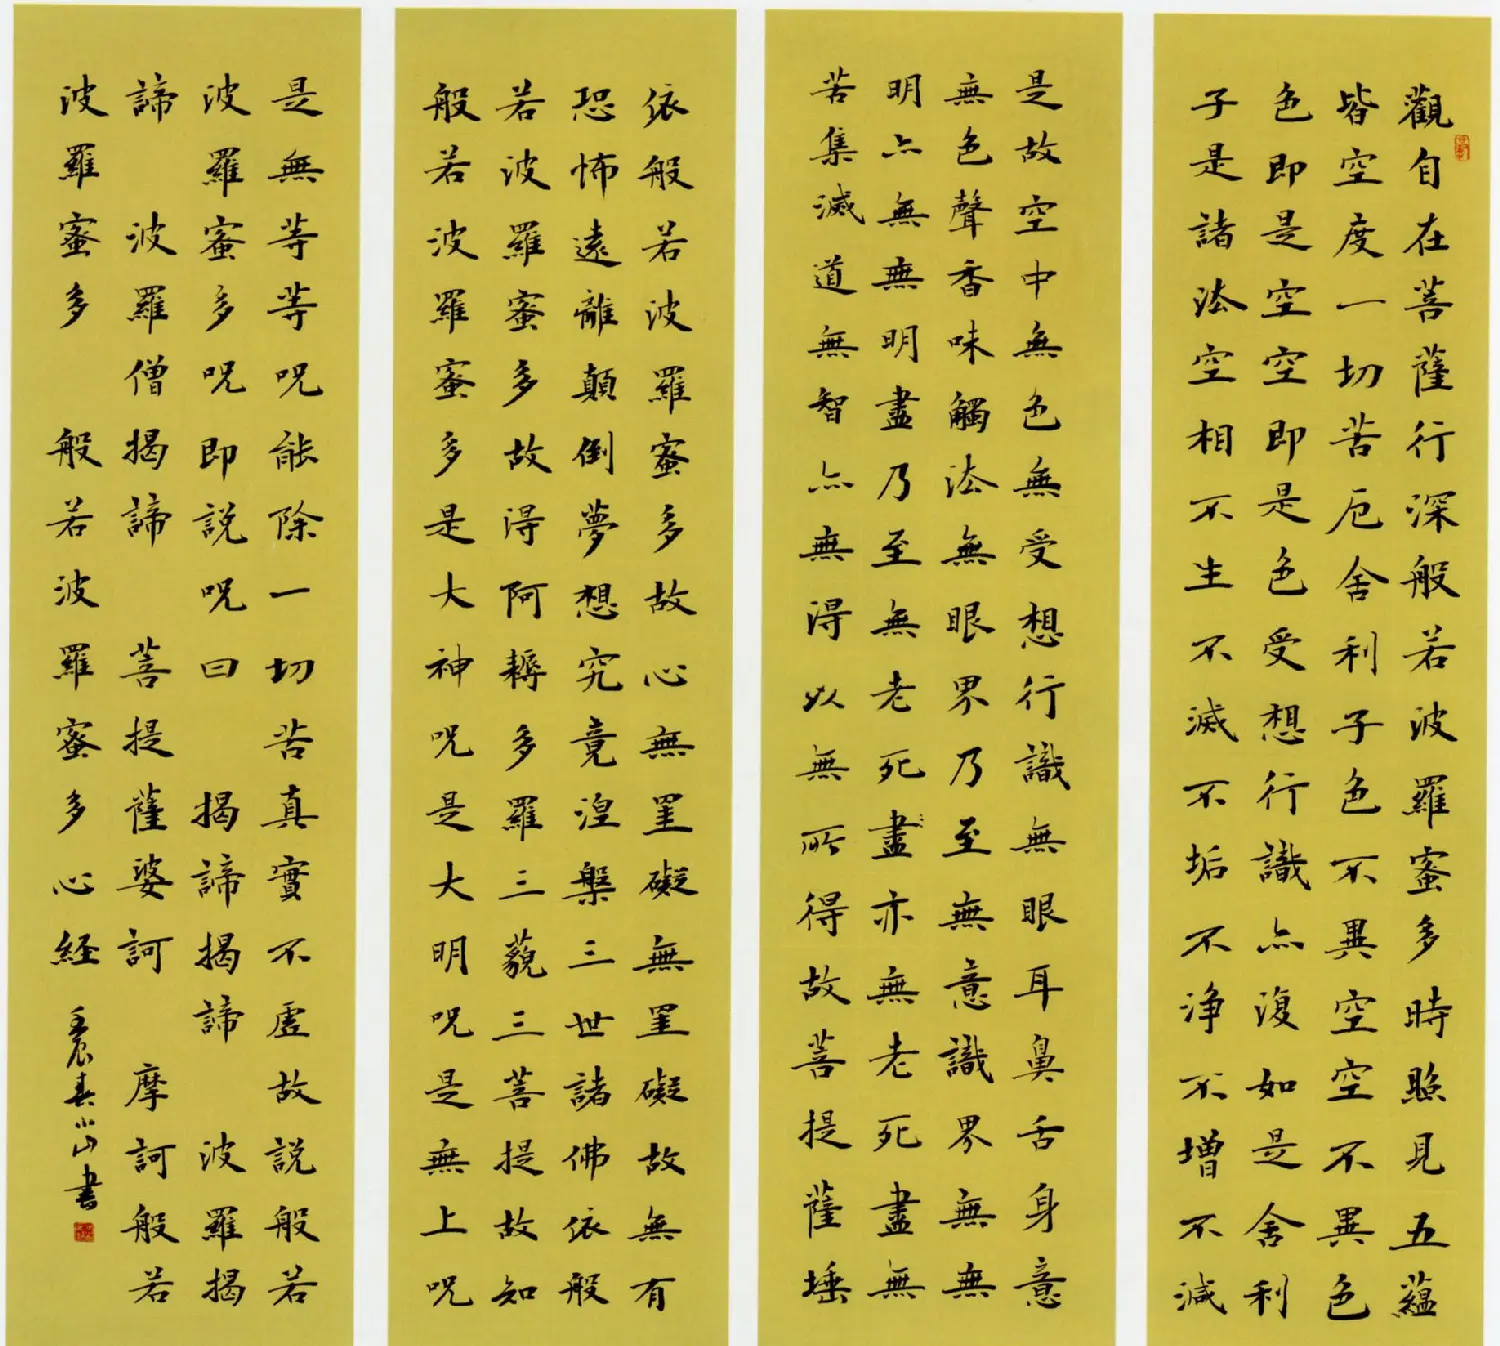 觀自在菩薩行深般若波羅蜜多時照見五蘊
皆空度一切苦厄舍利子色不異空空不異色
色即是空空即是色受想行識亦復如是舍利
子是諸法空相不生不滅不垢不净不增不減
是故空中無色無受想行識無眼耳鼻舌身意
無色聲香味觸法無眼界乃至無意識界無無
明亦無無明盡乃至無老死盡亦無老死盡無
苦集滅道無智亦無得以無所得故菩提薩埵
依般若波羅蜜多故心無罣礙無罣礙故無有
恐怖遠離顛倒夢想究竟涅槃三世諸佛依般
若波羅蜜多故得阿耨多羅三藐三菩提故知
般若波羅蜜多是大神呪是大明呪是無上呪
是無等等呪能除一切苦真實不虛故説般若
波羅蜜多呪即説呪曰 揭諦揭諦 波羅揭
諦 波羅僧揭諦 菩提薩婆訶 摩訶般若
波羅蜜多 般若波羅蜜多心経
壬辰春小山書